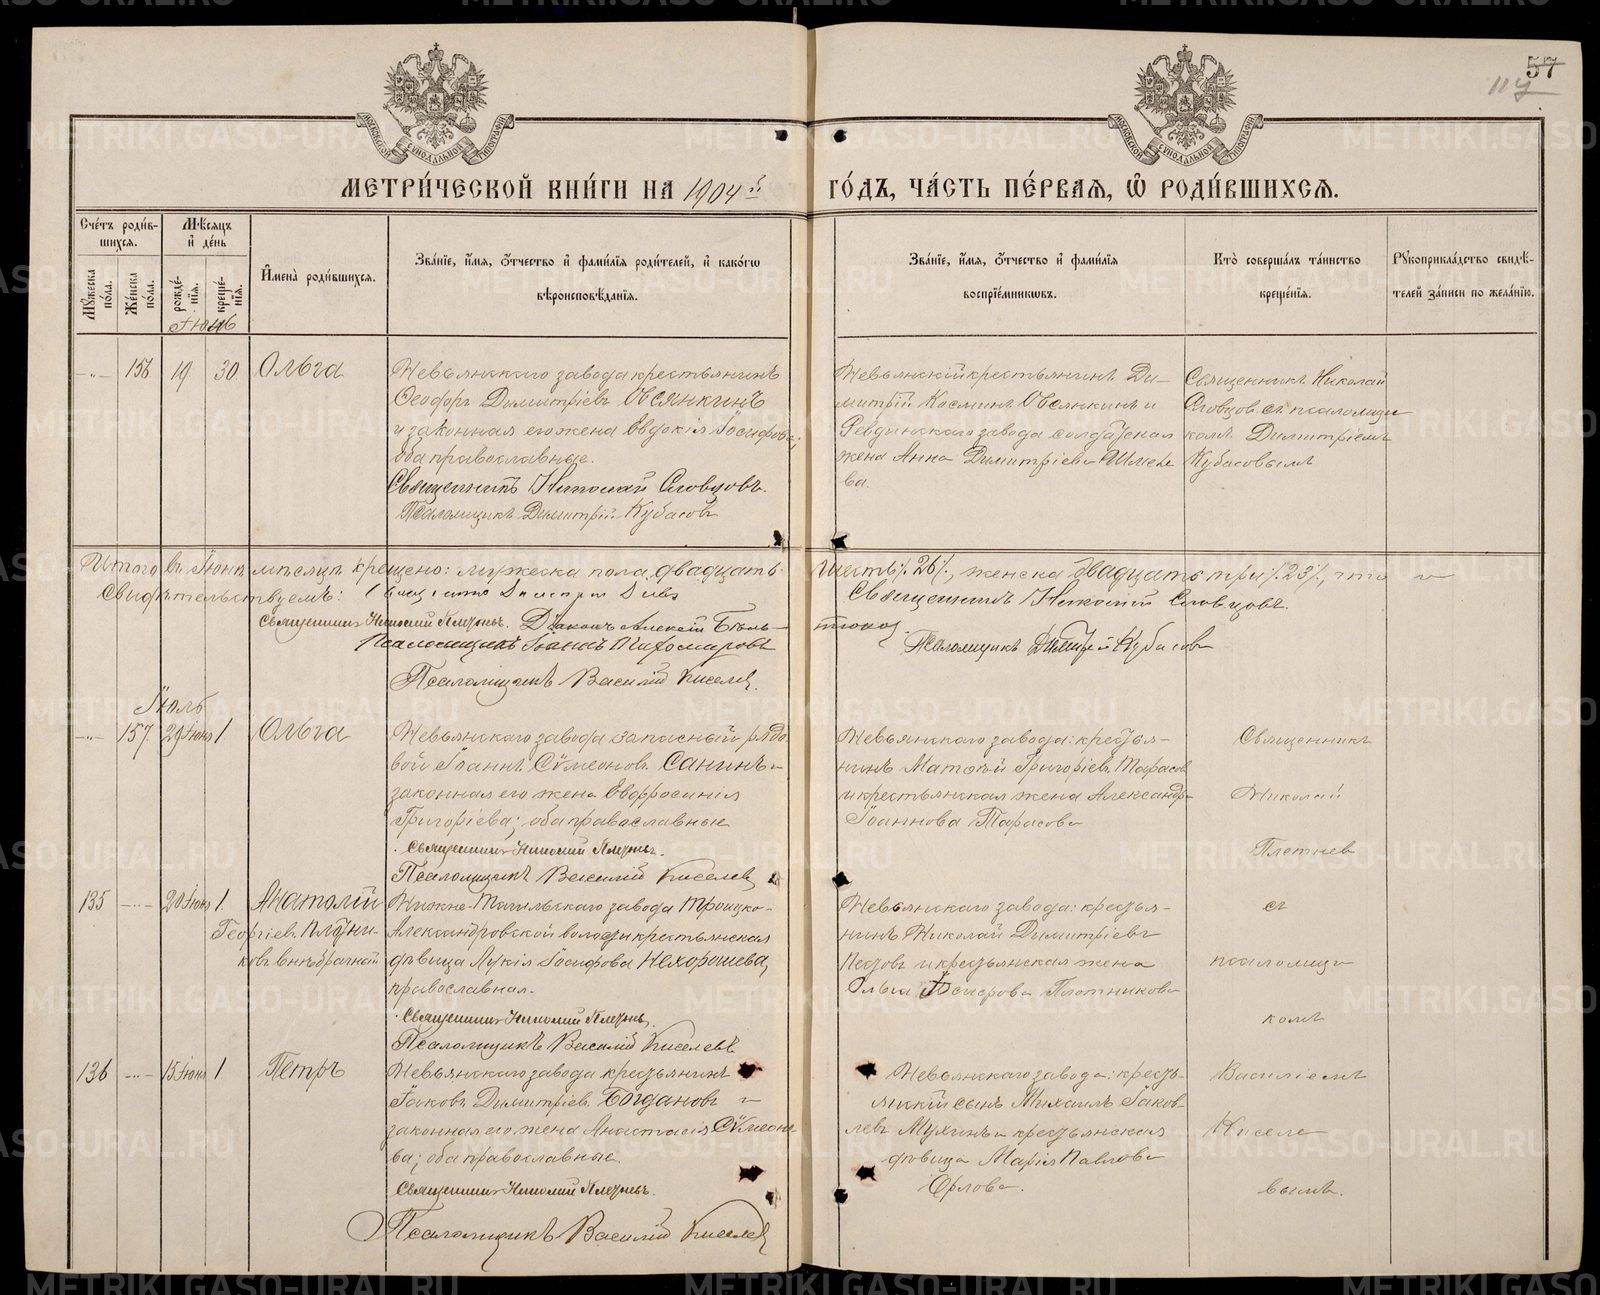 57
МЕТРИ́ЧЕСКОЙ КНИ́ГИ НА 1904 й
ГО́ДЪ, ЧА́СТЬ ПЕ́РВАЯ, Ѽ РОДИ́ВШИХСЯ.
Сче́тъ роди́в-
шихся.
Мѣ́сяцъ
и҆ де́нь
Мꙋ́жеска
по́ла.
Же́нска
по́ла.
рожде́-
нїя.
креще́-
нїя.
И҆мена̀ роди́вшихся.
Зва́нїе, и҆́мя, ѻ҆́тчество и҆ фами́лїя роди́телей, и҆ како́гѡ
вѣроисповѣ́данїя.
Зва́нїе, и҆́мя, ѻ҆́тчество и҆ фами́лїя
воспрїе́мникѡвъ.
Кто̀ соверша́лъ та́инство
креще́нїя.
Рꙋкоприкла́дство свидѣ́-
телей за́писи по жела́нїю.
156
19
30.
Ольга
Невьянскаго завода крестьянинъ
Ѳеодоръ Димитріевъ Овсянкинъ
и законная его жена Евдокія Іосифова;
оба православные.
Священникъ Николай Словцовъ.
Псаломщикъ Димитрій Кубасовъ
Невьянскій крестьянинъ Ди-
митрій Косминъ Овсянкинъ и
Ревдинскаго завода солдатская
жена Анна Димитріева
ва.
Священникъ Николай
Словцовъ съ псаломщи
комъ Димитріемъ
Кубасовымъ
Итого въ Іюнѣ мѣсяцѣ крещено: мужеска пола двадцать
шесть /26/, женска двадцать три /23/, что и
свидѣтельствуемъ:
Священникъ Николай Словцовъ.
Священникъ Николай Плетневъ. Діаконъ Алексій
Псаломщикъ Іоаннъ Тихомировъ
Псаломщикъ Димитрій Кубасовъ
Псаломщикъ Василій Киселев.
Іюль
157.
29 Іюня
1.
Ольга
Невьянскаго завода запасный рядо
вой Іоаннъ Сѷмеоновъ Санинъ и
законная его жена Евфросинія
Григоріева; оба православные
Священникъ Николай Плетневъ.
Псаломщикъ Василій Киселев
Невьянскаго завода: крестья-
нинъ Матѳей Григоріевъ Тарасов
и крестьянская жена Александра
Іоаннова Тарасова
Священникъ
Николай
Плетнев
135
20 Іюня
1.
Анатолій
Георгіев. Плотни-
ковъ внѣбрачный
Нижне-Тагильскаго завода Троицко-
Александровской волости крестьянская
дѣвица Лукія Іосифова Нехорошева,
православная.
Священникъ Николай Плетневъ.
Псаломщикъ Василій Киселевъ
Невьянскаго завода: крестья-
нинъ Николай Димитріевъ
Петровъ и крестьянская жена
Ольга Плотникова
съ
псаломщи
комъ
136
15 Іюня
1.
Петръ
Невьянскаго завода крестьянинъ
Іаковъ Димитріев. Богдановъ и
законная его жена Анастасія Сѷмеоно
ва; оба православные
Священникъ Николай Плетневъ.
Псаломщикъ Василій Киселев
Невьянскаго завода: кресть-
янскій сынъ Михаилъ Іаков-
левъ Мухинъ и крестьянская
дѣвица Марія Павлова
Орлова.
Василіемъ
Киселе
вымъ.